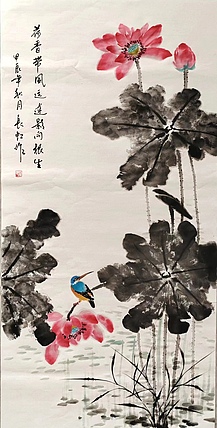 荷香带风远莲影向根生
甲辰年秋月长虹作